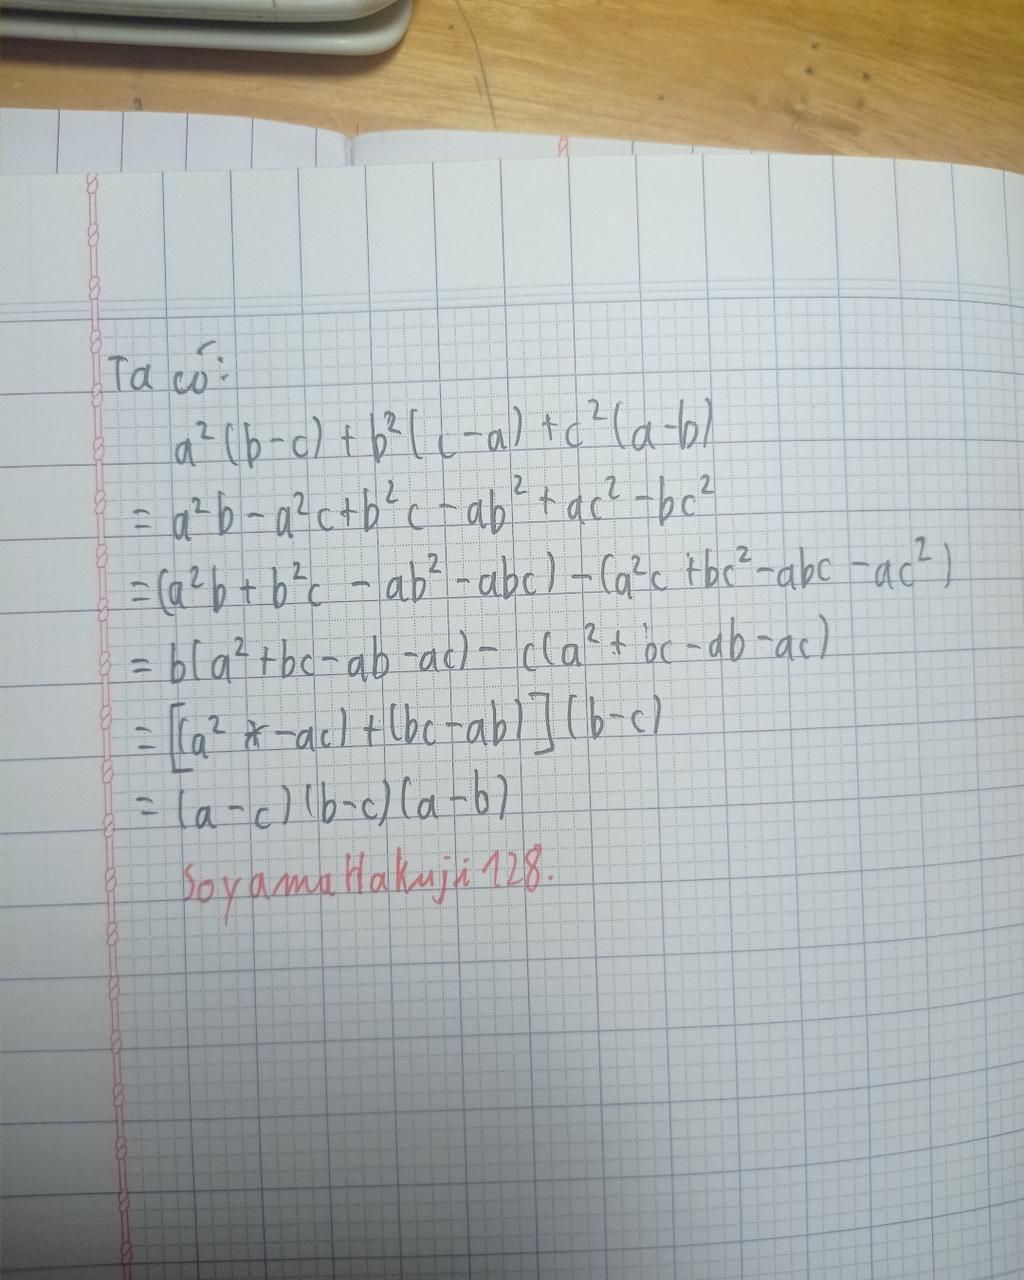 Ta có:
a²(b-c) + b²(c-a) + c²(a-b)
= a²b - a²c + b²c - ab² + ac² - bc²
= (a²b + b²c - ab² - abc) - (a²c + bc² - abc - ac²)
= b(a² + bc - ab - ac) - c(a² + bc - ab - ac)
= [(a² - ac) + (bc - ab)] (b-c)
= (a-c)(b-c)(a-b)
SoyamaHakuji128.